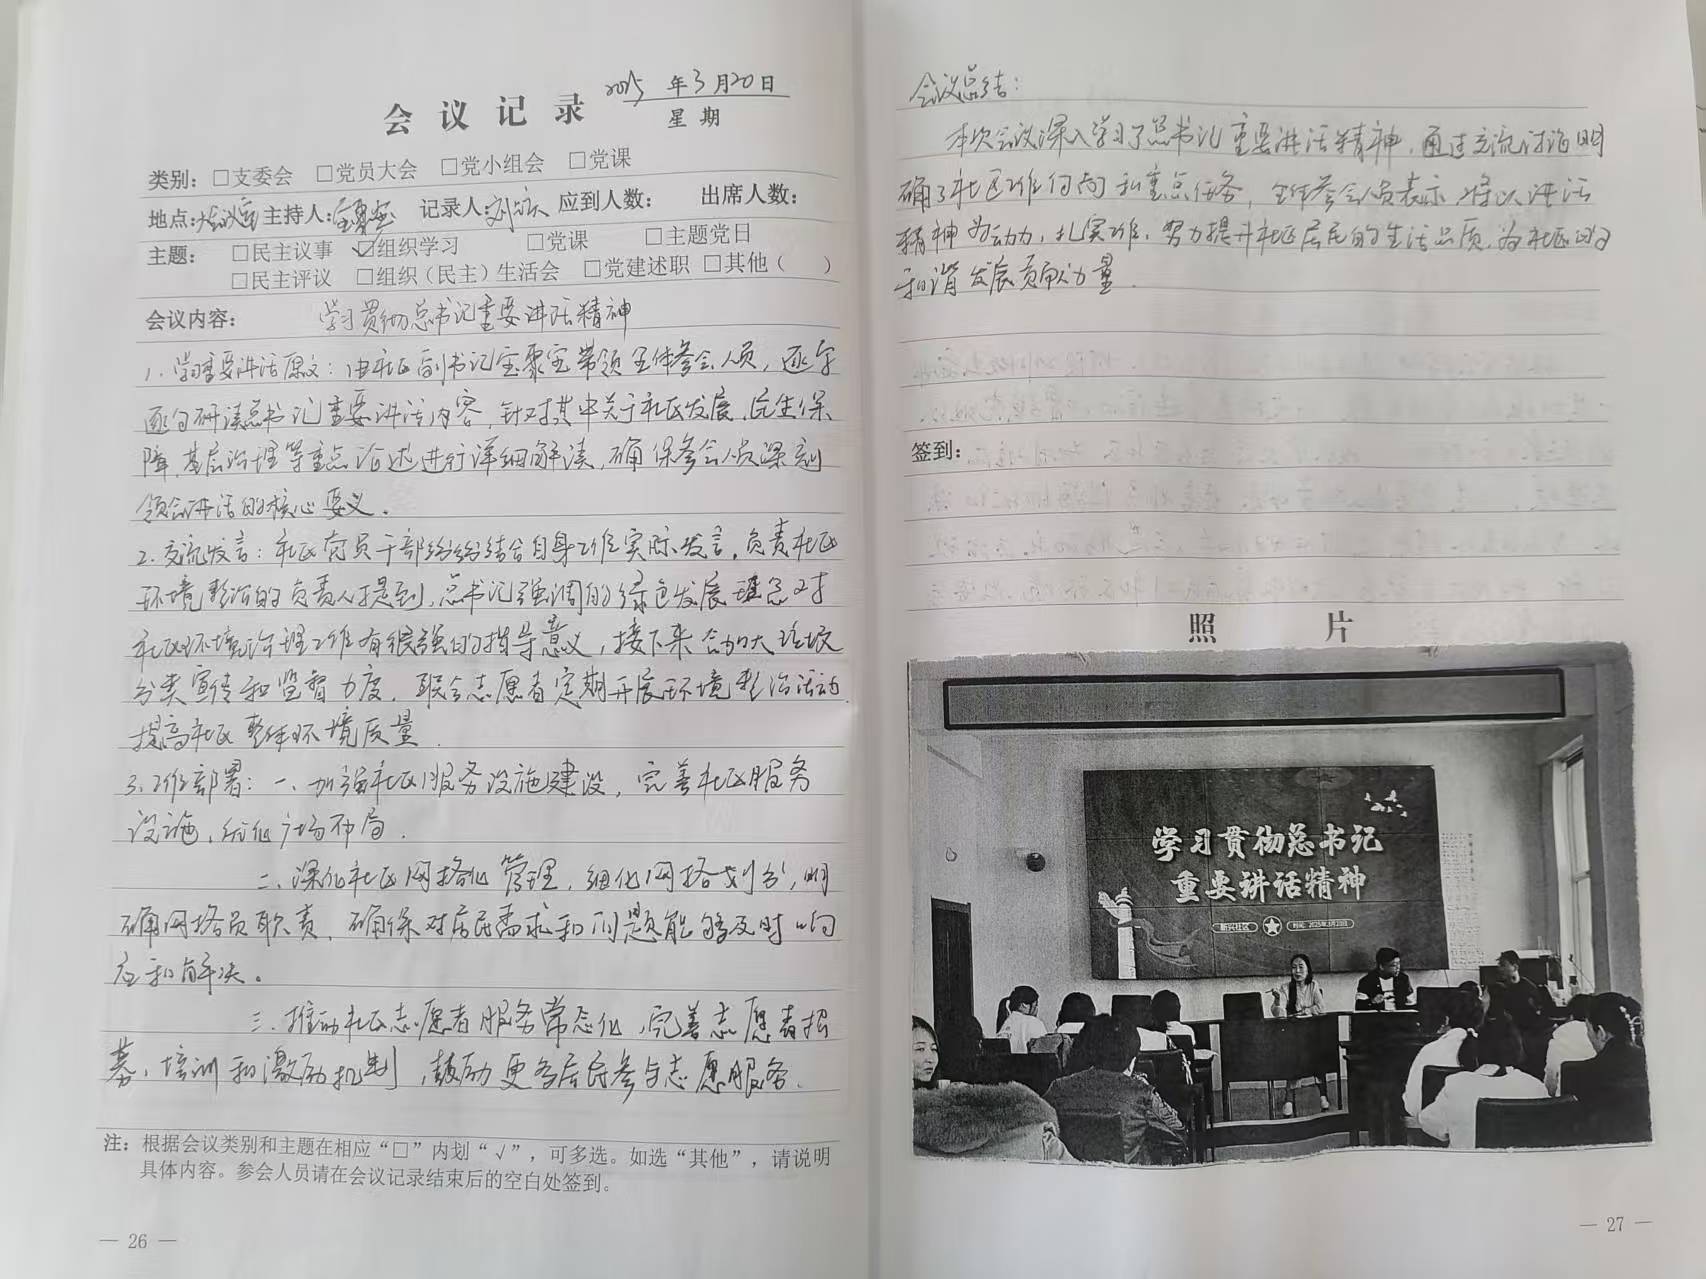 会议记录
2025年3月20日
星期
类别：□支委会 □党员大会 □党小组会 □党课
地点：会议室 主持人： 记录人： 应到人数： 出席人数：
主题： □民主议事 ☑组织学习 □党课 □主题党日
□民主评议 □组织（民主）生活会 □党建述职 □其他（ ）
会议内容： 学习贯彻总书记重要讲话精神
1.学习重要讲话原文：由社区副书记宝聚宝带领全体参会人员，逐字
逐句研读总书记重要讲话内容，针对其中关于社区发展、民生保
障、基层治理等重点论述进行详细解读，确保参会人员深刻
领会讲话的核心要义。
2.交流发言：社区党员干部纷纷结合自身工作实际发言，负责社区
环境整治的负责人提到，总书记强调的绿色发展理念对
社区环境治理工作有很强的指导意义，接下来会加大垃圾
分类宣传和监督力度，联合志愿者定期开展环境整治活动
提高社区整体环境质量。
3.工作部署：一、加强社区服务设施建设，完善社区服务
设施，优化广场布局。
二、深化社区网格化管理，细化网格划分，明
确网格员职责，确保对居民需求和问题能够及时响
应和解决。
三、推动社区志愿者服务常态化，完善志愿者招
募、培训和激励机制，鼓励更多居民参与志愿服务。
注：根据会议类别和主题在相应“□”内划“√”，可多选。如选“其他”，请说明
具体内容。参会人员请在会议记录结束后的空白处签到。
— 26 —
会议总结：
本次会议深入学习了总书记重要讲话精神，通过交流讨论明
确了社区工作方向和重点任务，全体参会人员表示，将以讲话
精神为动力，扎实工作，努力提升社区居民的生活品质，为社区的
和谐发展贡献力量。
签到：
照 片
学习贯彻总书记
重要讲话精神
新兴社区 时间：2025年3月20日
— 27 —